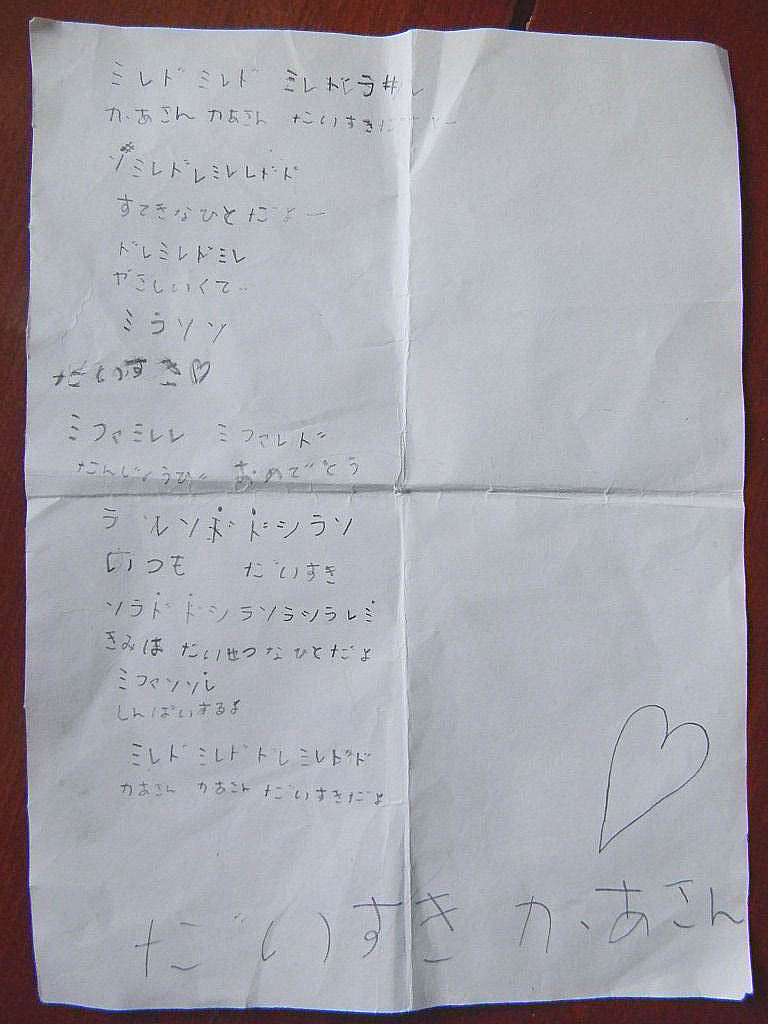 ミレド ミレド ミレドレラ#レ
かあさん かあさん だいすきだよー
ソ#ミレドレミレレドド
すてきなひとだよー
ドレミレドミレ
やさしいくて‥
ミラソソ
だいすき♡
ミファミレレ ミファレド
たんじょうび おめでとう
ラ ソドドシラソ
いつも だいすき
ソラドドシラソラソラレミ
きみは たいせつなひとだよ
ミファソソレ
しんぱいするよ
ミレド ミレド ドレミレドドド
かあさん かあさん だいすきだよ
だいすき かあさん